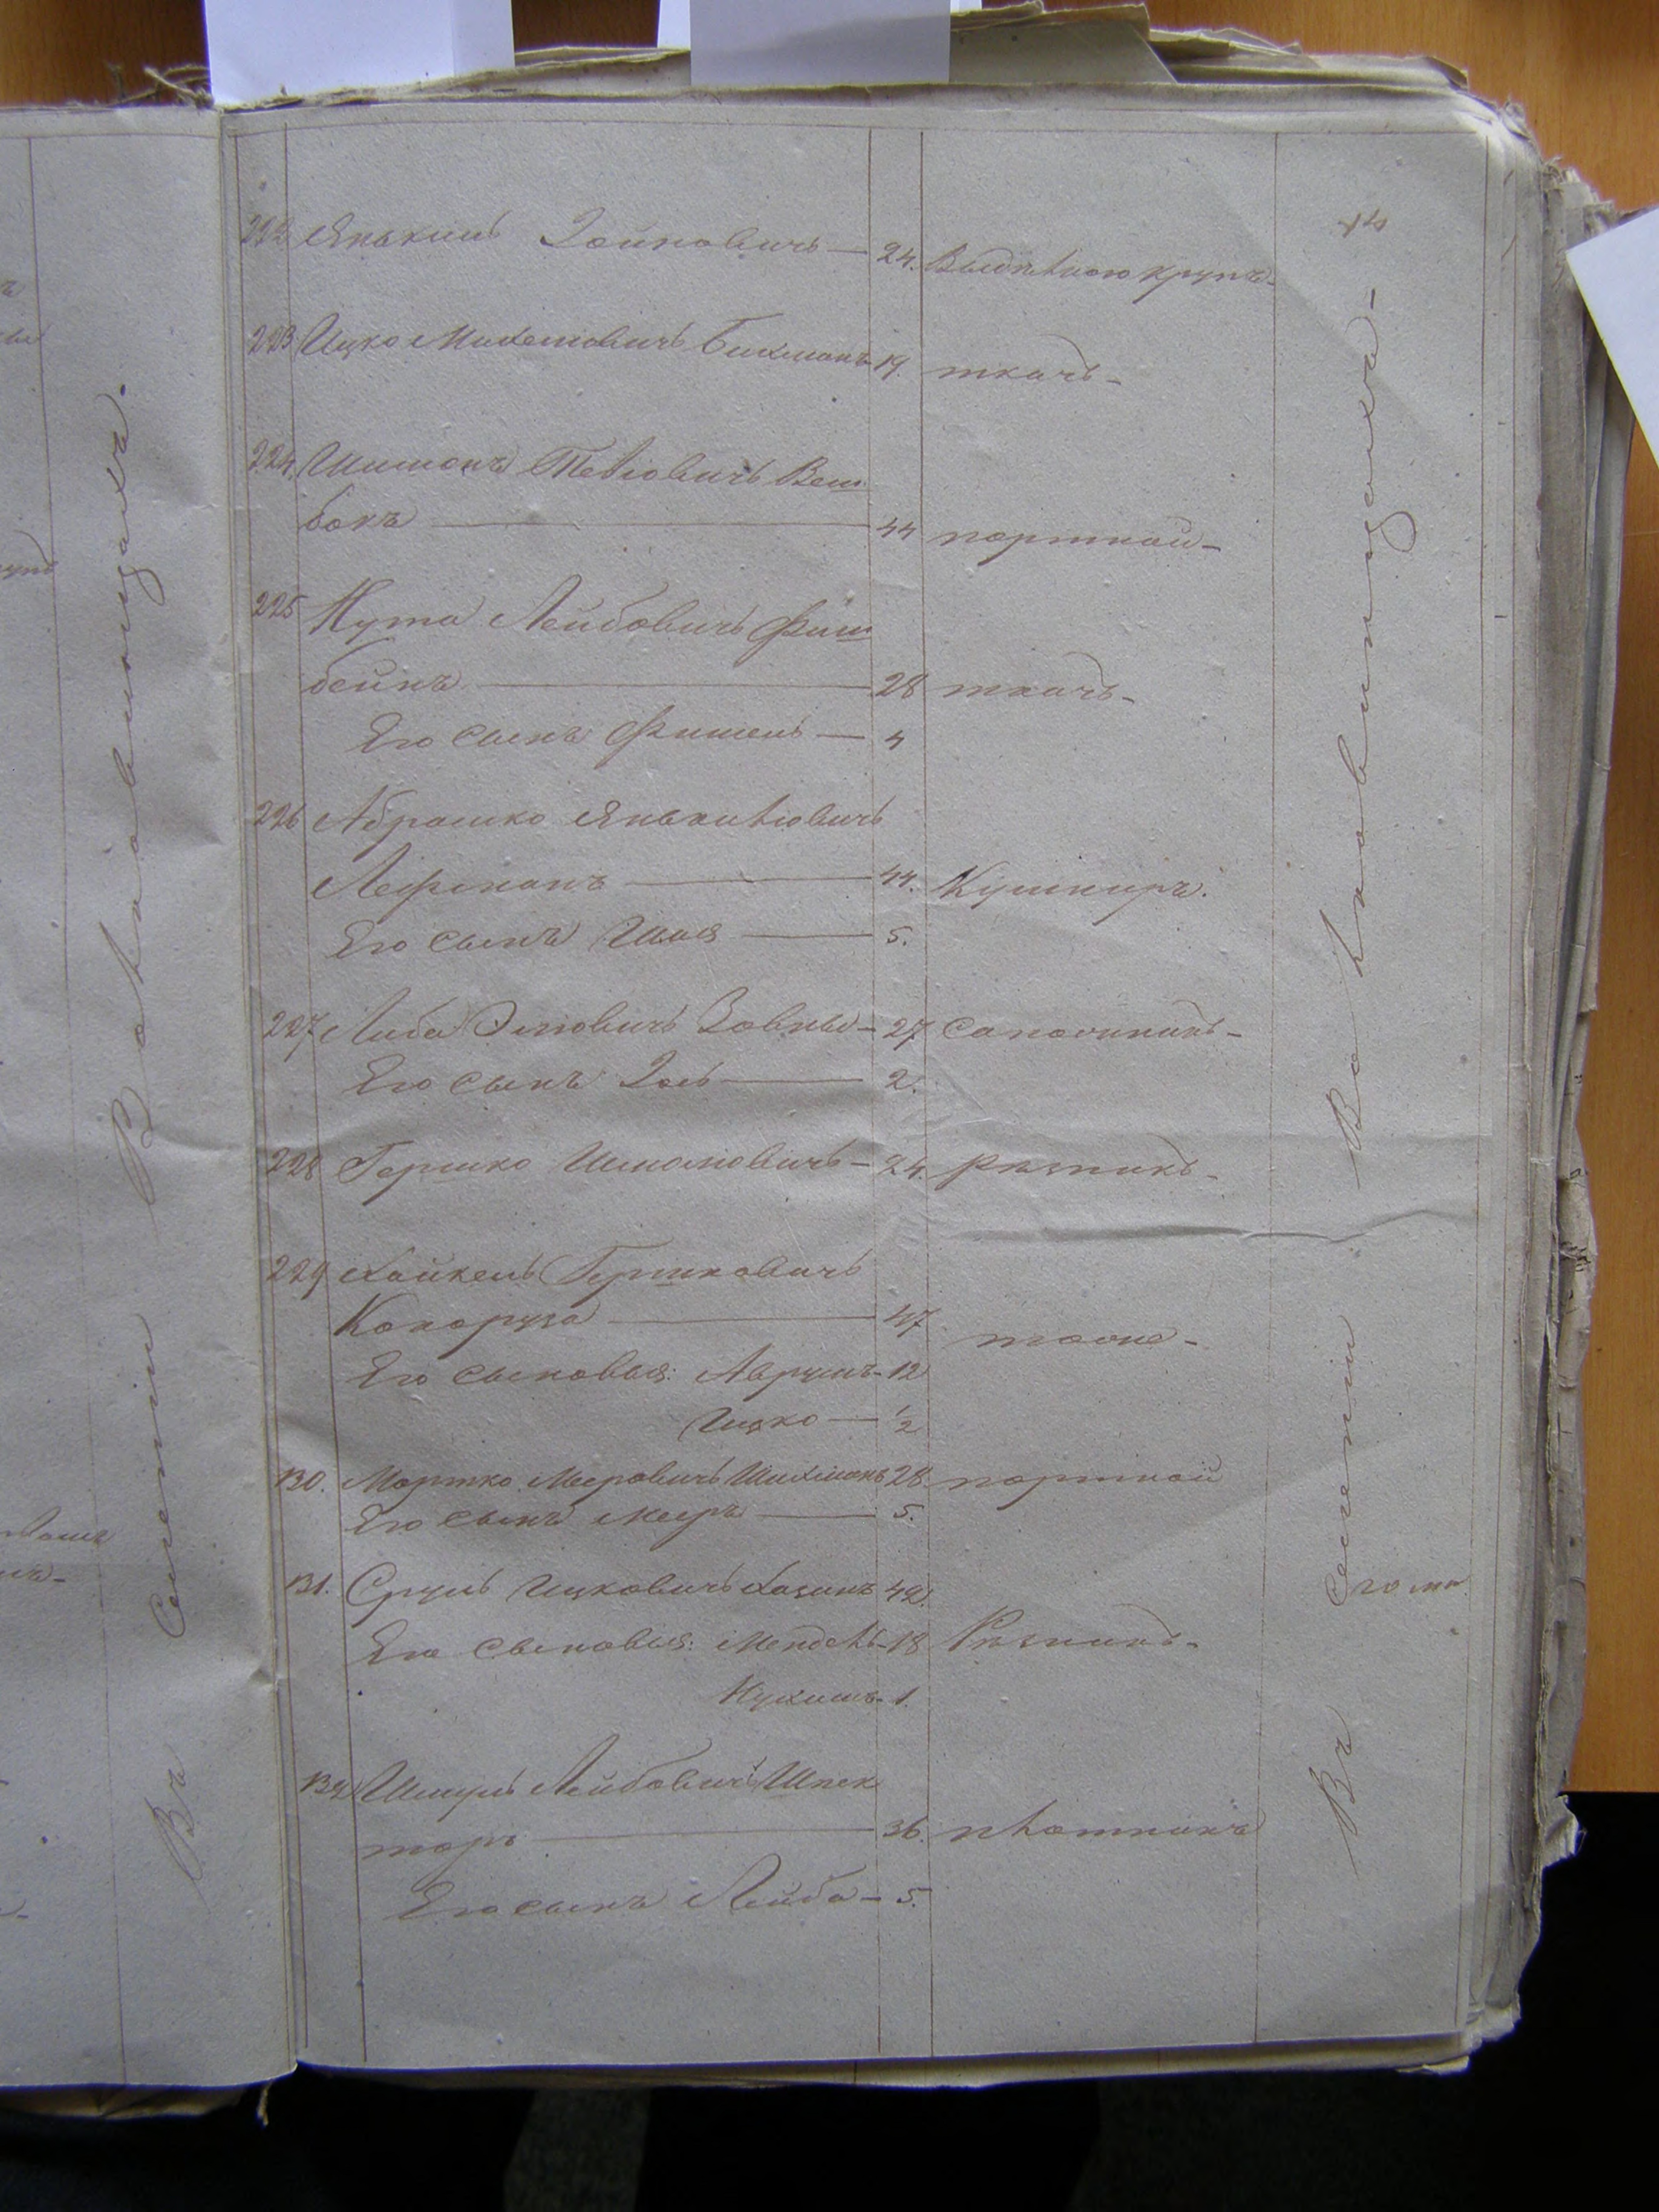 222 Янькель Зойновичъ — 24. Выдѣлкою крупъ
223 Ицко Михелиовичъ Бихманъ 19. ткачь -
224. Шимонъ Тевіовичъ Веш
бокъ — 44 портной -
225 Нута Лейбовичъ Фиш
бейнъ — 28 ткачь -
Его сынъ Фишель — 4
226 Абрашко Янькеліовичъ
Лефманъ — 44. Кушниръ.
Его сынъ — 5.
227 Либа Зовны - 27 Сапожникъ -
Его сынъ — 2.
228 Гершко Шмолиовичъ - 24. Рѣзникъ -
229 Хайкель Гершковичъ
Кокоруза — 47 тоже -
Его сыновья: Аврумъ - 12
Ицко — 1/2
130. Мортко Меировичъ Шихманъ 28 портной
Его сынъ Меиръ — 5.
131. Сруль Ицковичъ Хазинъ 42.
Его сыновья: Мендель - 18 Рѣзникъ -
Нухимъ - 1.
132 Шмуль Лейбовичъ Шпек
торъ — 36. плотникъ
Его сынъ Лейба - 5.
Въ Селеніи Вовковинцахъ -
Въ Селеніи Вовковинцахъ.